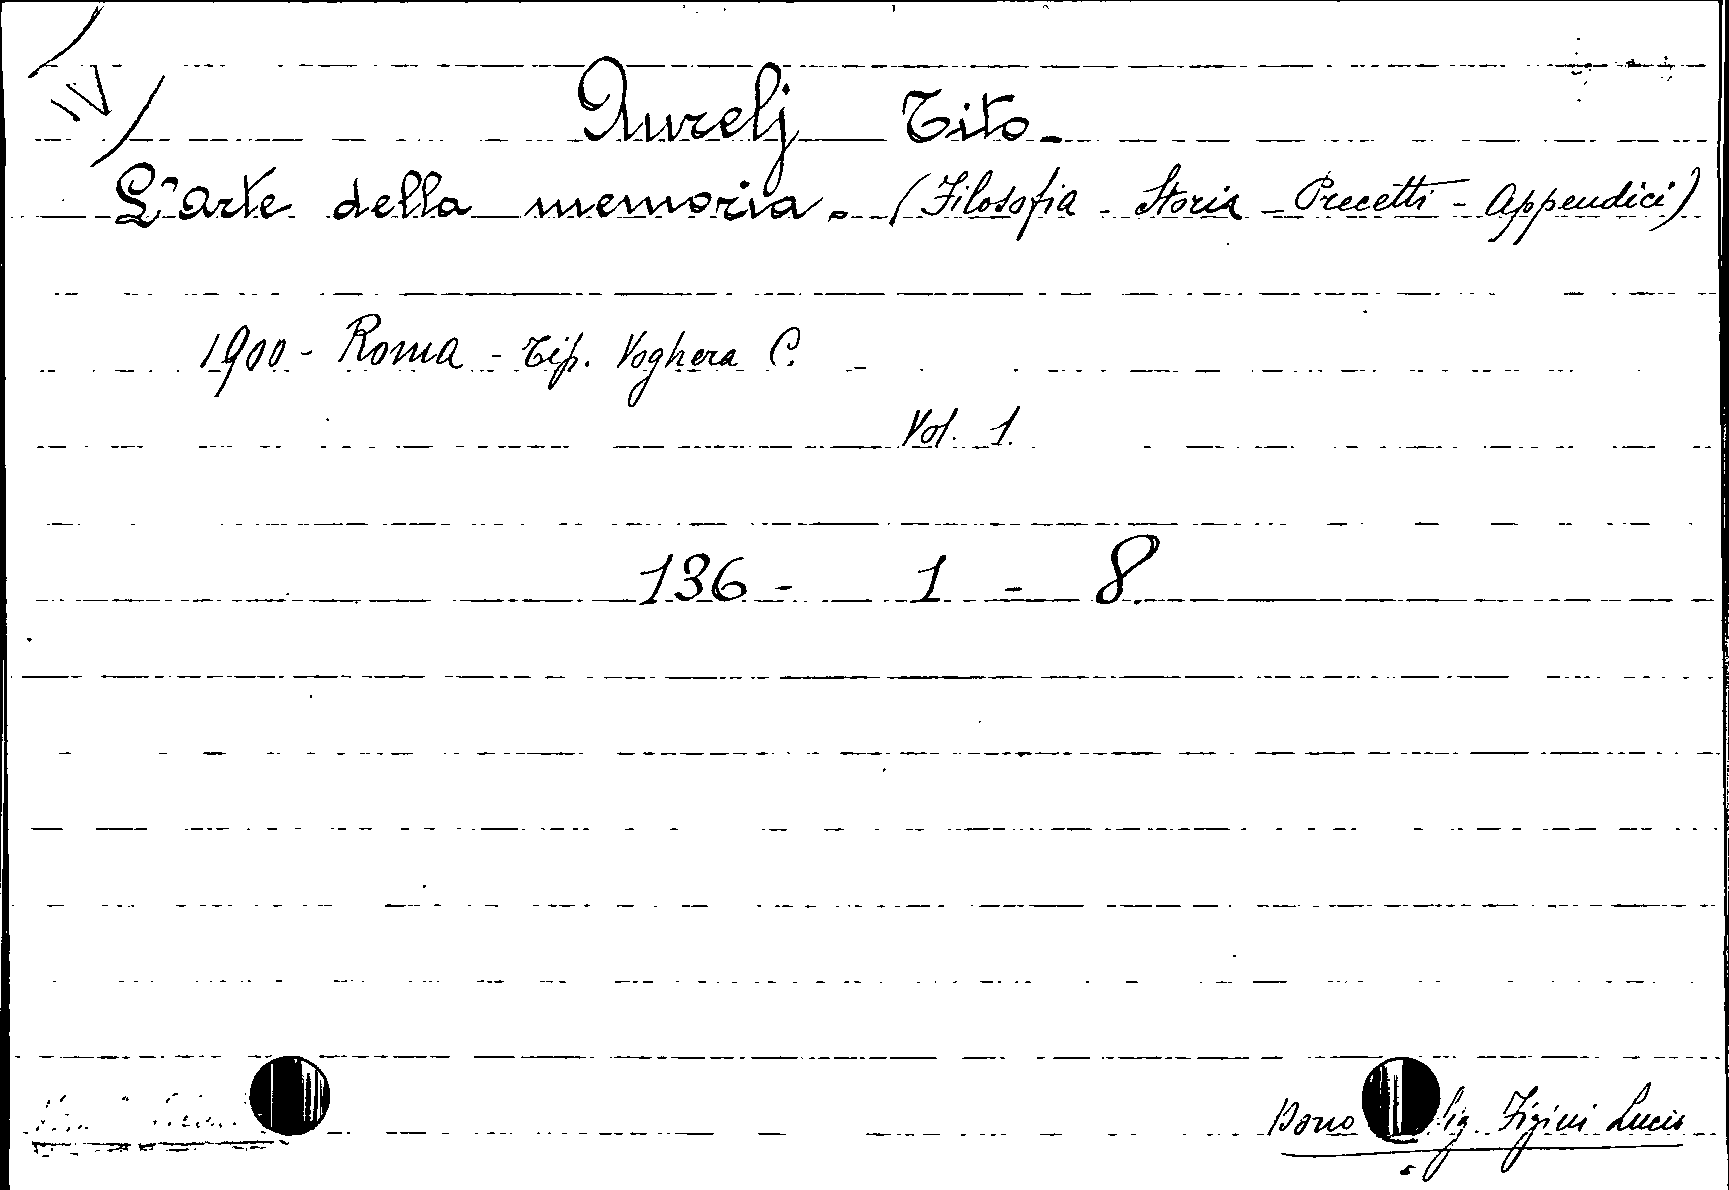 IV
Aurelj Tito.
L'arte della memoria. (Filosofia - Storia - Precetti - Appendici)
1900 - Roma - Tip. Voghera C.
Vol. 1.
136 - 1 - 8.
Dono Sig. Figini Lucio